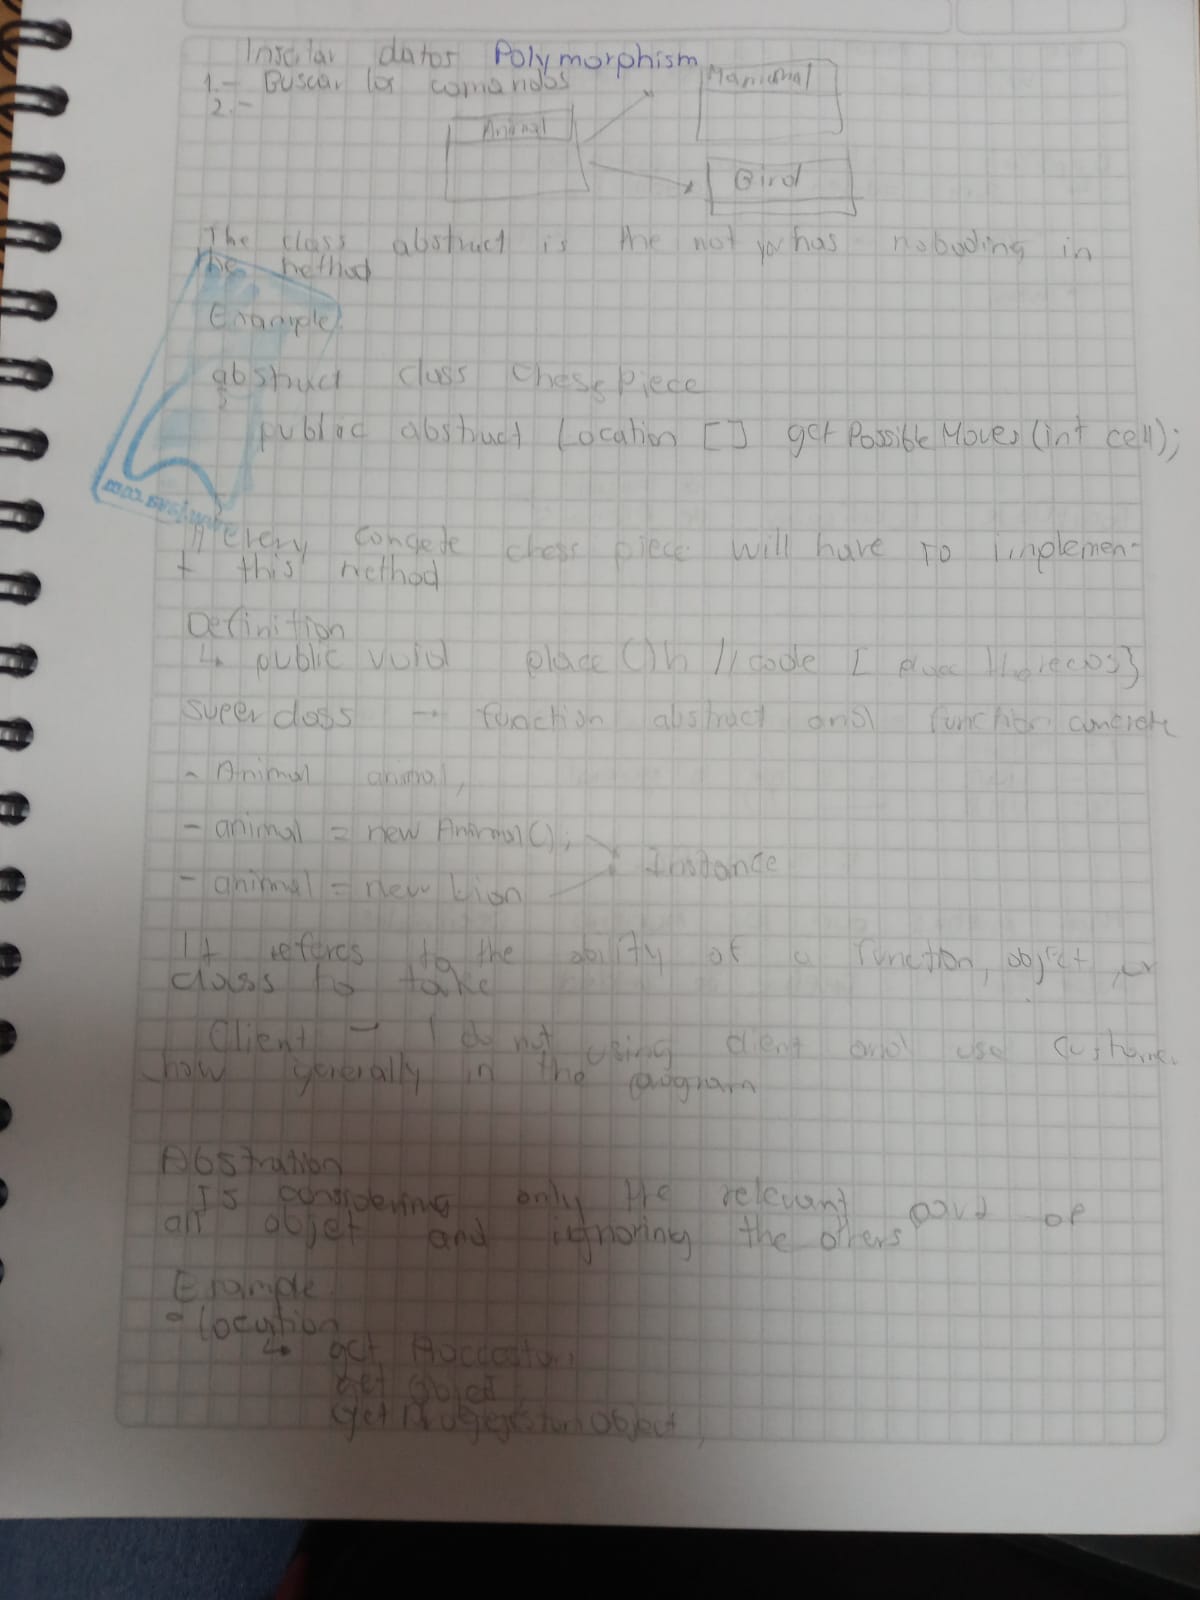 Insertar datos Polymorphism
1.- Buscar los comandos
2.-
Mammal
Animal
Bird
The class abstract is the not you has nobuding in
the method
Example
abstract class ChessPiece
{
public abstract Location [] getPossibleMoves(int cell);
// every concrete chess piece will have to implemen-
t this method
Definition
↳ public void place () { // code
super class → function abstract and function concrete
- Animal animal,
- animal = new Animal();
Instance
- animal = new Lion
It referes to the ability of a function, object or
class to take
Client - I do not using client and use
how generally in the program
Abstration
Is considering only the relevant part of
an objet and ignoring the others
Example
- location
↳ get
get Object
get Object